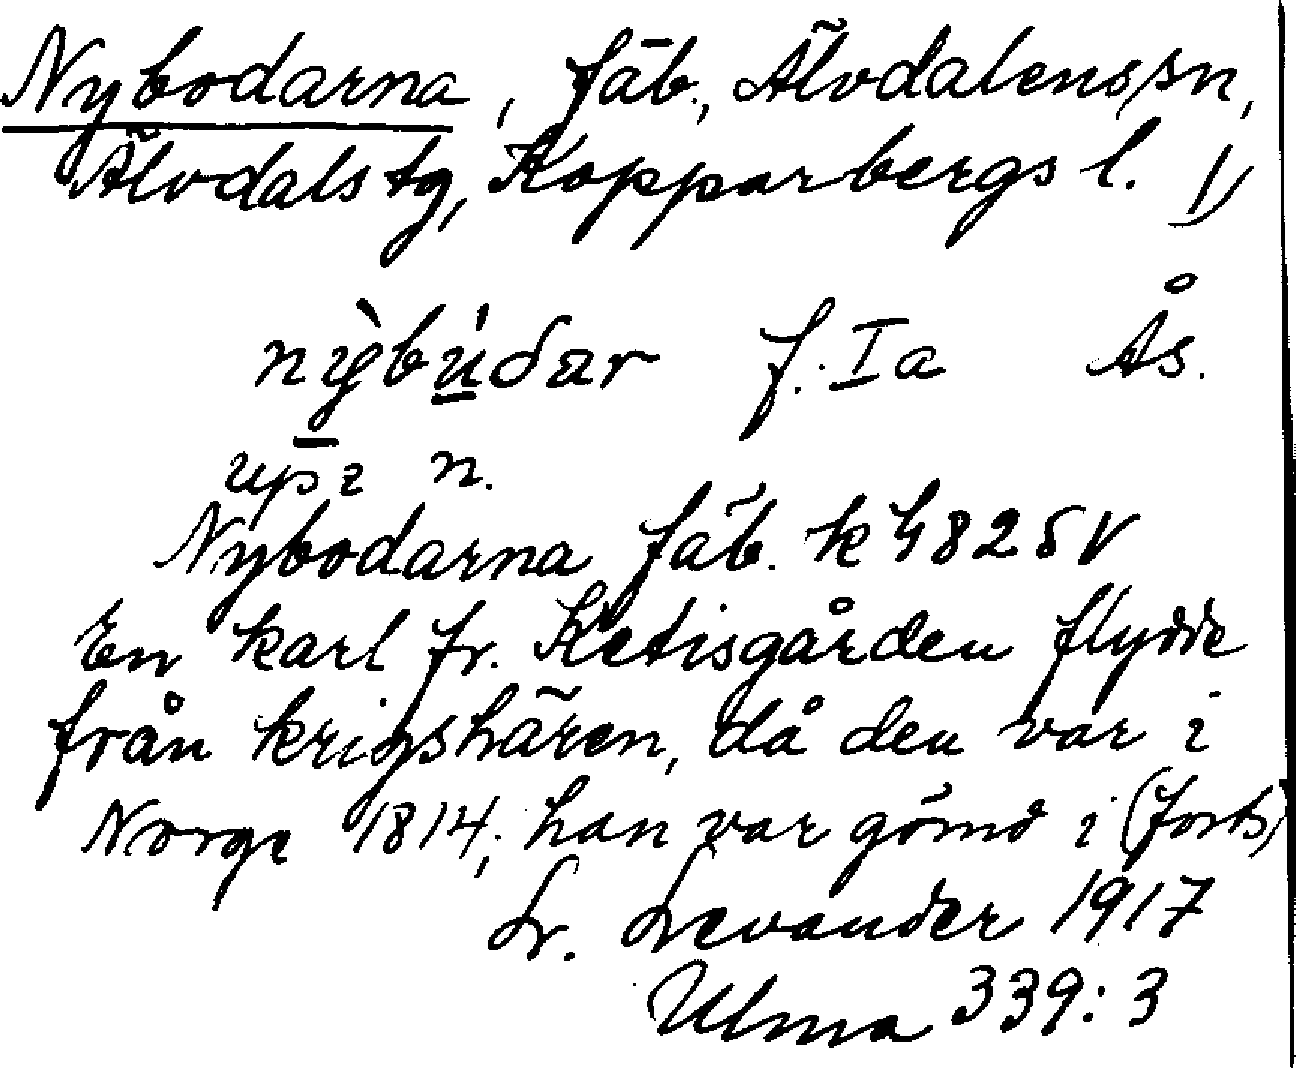 Nybodarna, fäb., Älvdalens sn,
Älvdals tg, Kopparbergs l. 1)
nỳbú̲dar f. Ia Ås.
n.
Nybodarna fäb. k 4825 V
En karl fr. Ketisgården flydde
från krigshären, då den var i
Norge 1814; han var gömd i (forts)
L. Levander 1917
Ulma 339:3